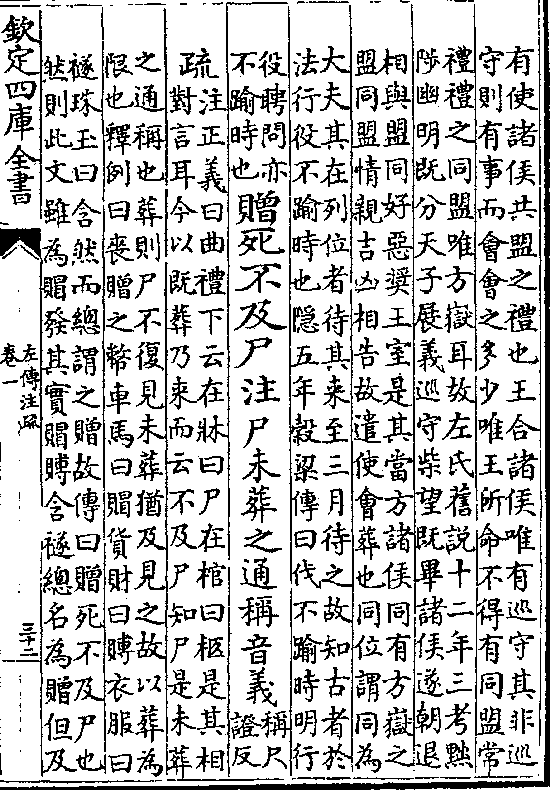 有使諸侯共盟之禮也王合諸侯唯有巡守其非巡
守則有事而會會之多少唯王所命不得有同盟常
禮禮之同盟唯方嶽耳故左氏舊說十二年三考黜
陟幽明既分天子展義巡守柴望既畢諸侯遂朝退
相與盟同好惡奬王室是其當方諸侯同有方嶽之
盟同盟情親吉凶相告故遣使會葬也同位謂同為
大夫其在列位者待其來至三月待之故知古者於
法行役不踰時也隱五年穀梁傳曰伐不踰時明行
役聘問亦
不踰時也
贈死不及尸注尸未葬之通稱音義
稱尺
證反
疏
注正義曰曲禮下云在牀曰尸在棺曰柩是其相
對言耳今以既葬乃来而云不及尸知尸是未葬
之通稱也葬則尸不復見未葬猶及見之故以葬為
限也釋例曰喪贈之幣車馬曰賵貨財曰賻衣服曰
襚珠玉曰含然而總謂之贈故傳曰贈死不及尸也
然則此文雖為賵發其實賵賻含襚總名為贈但及
欽定四庫全書
左傳注疏
卷一
三十二